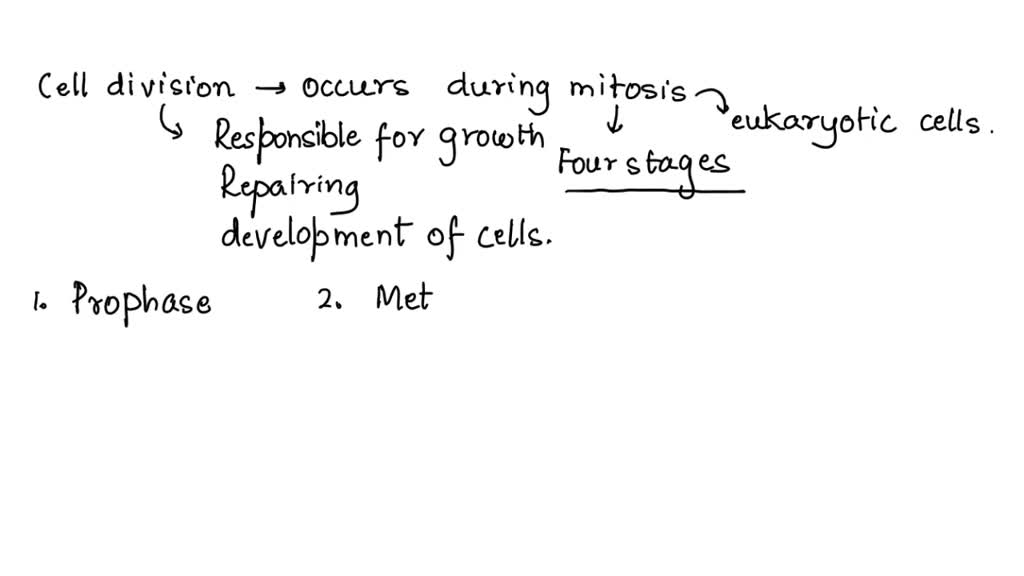 Cell division → occurs during mitosis
eukaryotic cells.
Responsible for growth
Four stages
Repairing
development of cells.
1. Prophase 2. Met